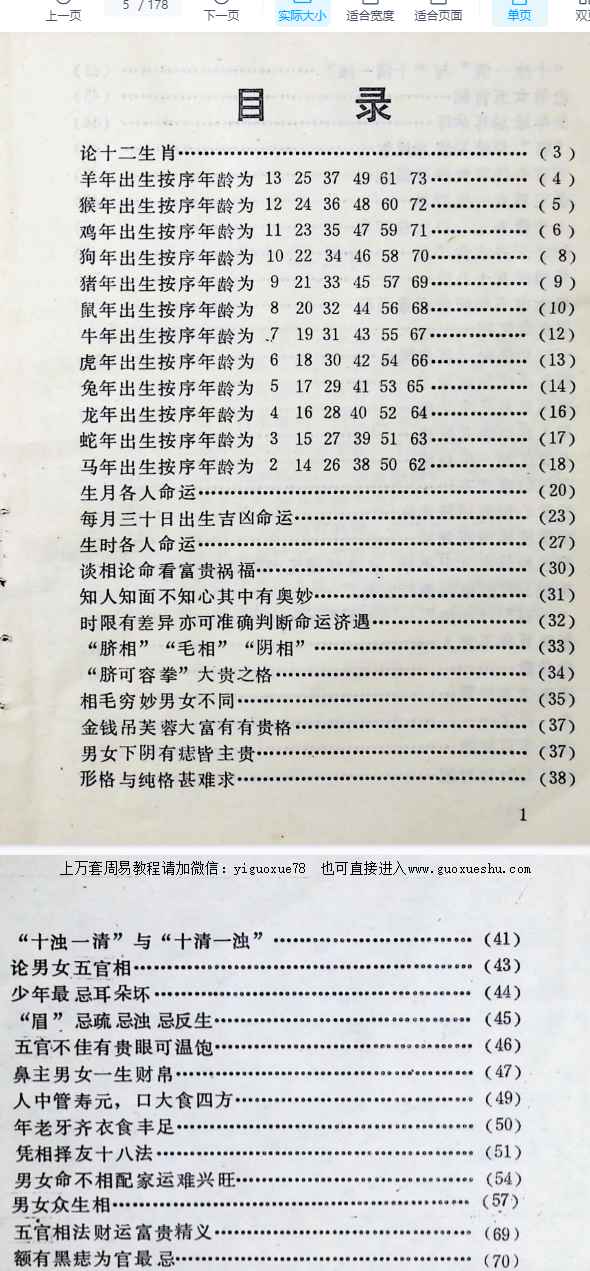 上一页 5 / 178 下一页 实际大小 适合宽度 适合页面 单页
目 录
论十二生肖………………………………………（3）
羊年出生按序年龄为 13 25 37 49 61 73…………（4）
猴年出生按序年龄为 12 24 36 48 60 72…………（5）
鸡年出生按序年龄为 11 23 35 47 59 71…………（6）
狗年出生按序年龄为 10 22 34 46 58 70…………（8）
猪年出生按序年龄为 9 21 33 45 57 69…………（9）
鼠年出生按序年龄为 8 20 32 44 56 68…………（10）
牛年出生按序年龄为 7 19 31 43 55 67…………（12）
虎年出生按序年龄为 6 18 30 42 54 66…………（13）
兔年出生按序年龄为 5 17 29 41 53 65…………（14）
龙年出生按序年龄为 4 16 28 40 52 64…………（16）
蛇年出生按序年龄为 3 15 27 39 51 63…………（17）
马年出生按序年龄为 2 14 26 38 50 62…………（18）
生月各人命运………………………………………（20）
每月三十日出生吉凶命运…………………………（23）
生时各人命运………………………………………（27）
谈相论命看富贵祸福………………………………（30）
知人知面不知心其中有奥妙………………………（31）
时限有差异亦可准确判断命运济遇………………（32）
“脐相”“毛相”“阴相”…………………………（33）
“脐可容拳”大贵之格……………………………（34）
相毛穷妙男女不同…………………………………（35）
金钱吊芙蓉大富有有贵格…………………………（37）
男女下阴有痣皆主贵………………………………（37）
形格与纯格甚难求…………………………………（38）
1
上万套周易教程请加微信：yiguoxue78 也可直接进入www.guoxueshu.com
“十浊一清”与“十清一浊”……………………（41）
论男女五官相………………………………………（43）
少年最忌耳朵坏……………………………………（44）
“眉”忌疏忌浊忌反生……………………………（45）
五官不佳有贵眼可温饱……………………………（46）
鼻主男女一生财帛…………………………………（47）
人中管寿元，口大食四方…………………………（49）
年老牙齐衣食丰足…………………………………（50）
凭相择友十八法……………………………………（51）
男女命不相配家运难兴旺…………………………（54）
男女众生相…………………………………………（57）
五官相法财运富贵精义……………………………（69）
额有黑痣为官最忌…………………………………（70）